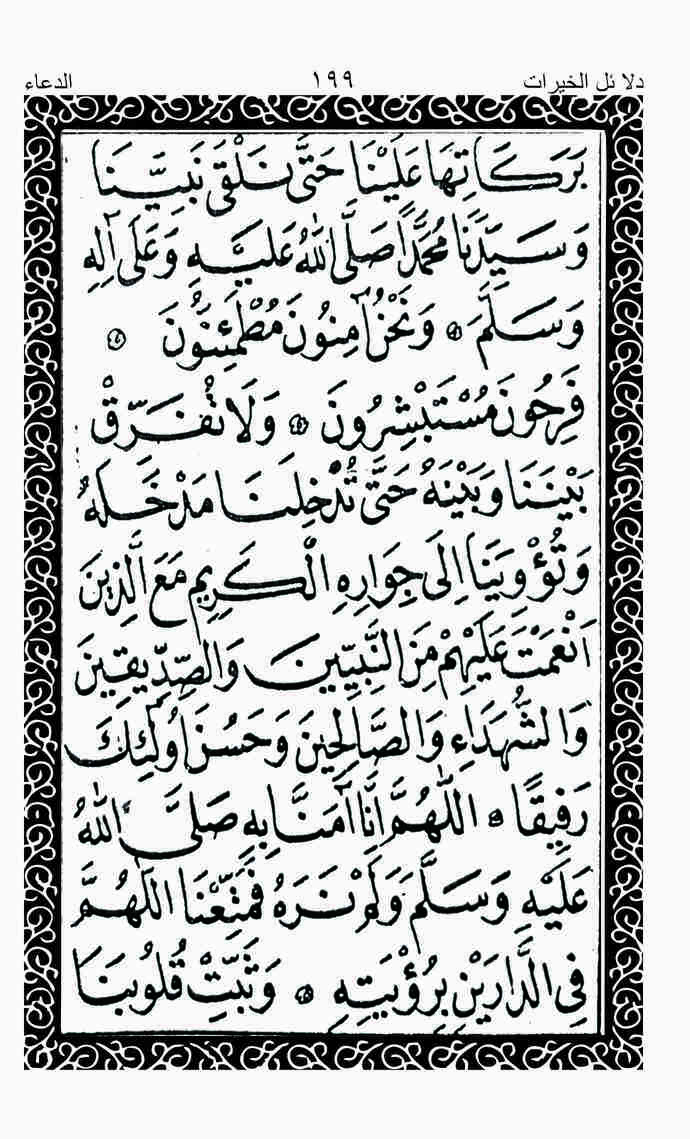 دلائل الخيرات ١٩٩ الدعاء
بَرَكَاتِهَا عَلَيْنَا حَتَّى نَلْقَى نَبِيَّنَا
وَسَيِّدَنَا مُحَمَّدًا صَلَّى اللّٰهُ عَلَيْهِ وَعَلَى آلِهِ
وَسَلَّمَ وَنَحْنُ آمِنُونَ مُطْمَئِنُّونَ
فَرِحُونَ مُسْتَبْشِرُونَ وَلَا تُفَرِّقْ
بَيْنَنَا وَبَيْنَهُ حَتَّى تُدْخِلَنَا مَدْخَلَهُ
وَتُؤْوِيَنَا اِلَى جِوَارِهِ الْكَرِيمِ مَعَ الَّذِينَ
اَنْعَمْتَ عَلَيْهِمْ مِنَ النَّبِيِّينَ وَالصِّدِّيقِينَ
وَالشُّهَدَاءِ وَالصَّالِحِينَ وَحَسُنَ اُولَئِكَ
رَفِيقًا اَللّٰهُمَّ اِنَّا آمَنَّا بِهِ صَلَّى اللّٰهُ
عَلَيْهِ وَسَلَّمَ وَلَمْ نَرَهُ فَمَتِّعْنَا اَللّٰهُمَّ
فِي الدَّارَيْنِ بِرُؤْيَتِهِ وَثَبِّتْ قُلُوبَنَا